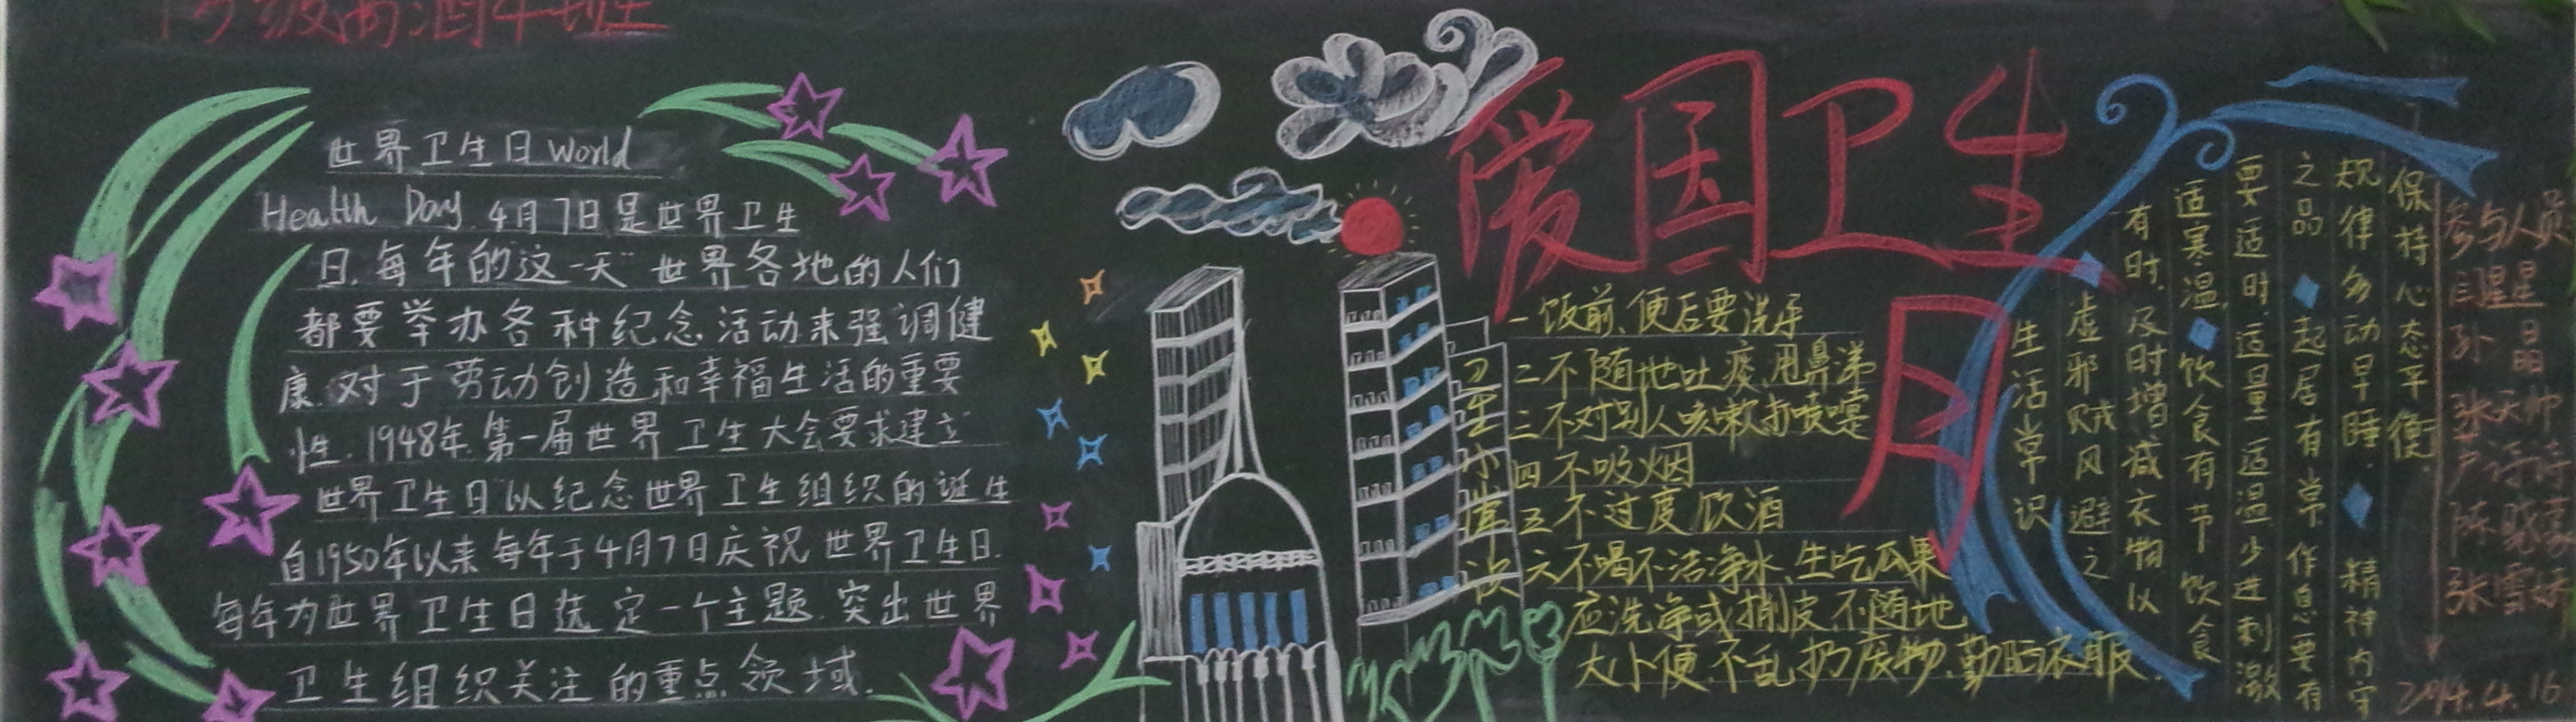 级
班
世界卫生日World
Health Day.4月7日是世界卫生
日.每年的这一天"世界各地的人们
都要举办各种纪念活动来强调健
康.对于劳动创造和幸福生活的重要
性.1948年.第一届世界卫生大会要求建立
世界卫生日"以纪念世界卫生组织的诞生
自1950年以来每年于4月7日庆祝世界卫生日.
每年为世界卫生日选定一个主题.突出世界
卫生组织关注的重点领域.
爱国卫生
月
卫生小常识
一饭前、便后要洗手
二不随地吐痰、甩鼻涕
三不对别人咳嗽打喷嚏
四不吸烟
五不过度饮酒
六不喝不洁净水、生吃瓜果
应洗净或削皮不随地
大小便.不乱扔废物.勤晒衣服.
生活常识
虚邪贼风避之
有时.及时增减衣物以
适寒温 饮食有节 饮食
要适时.适量适温.少进刺激
之品 起居有常.作息要有
规律多动早睡. 精神内守
保持心态平衡.
参与人员
星星
孙晶
张天帅
陈晓
张雪娇
2014.4.16